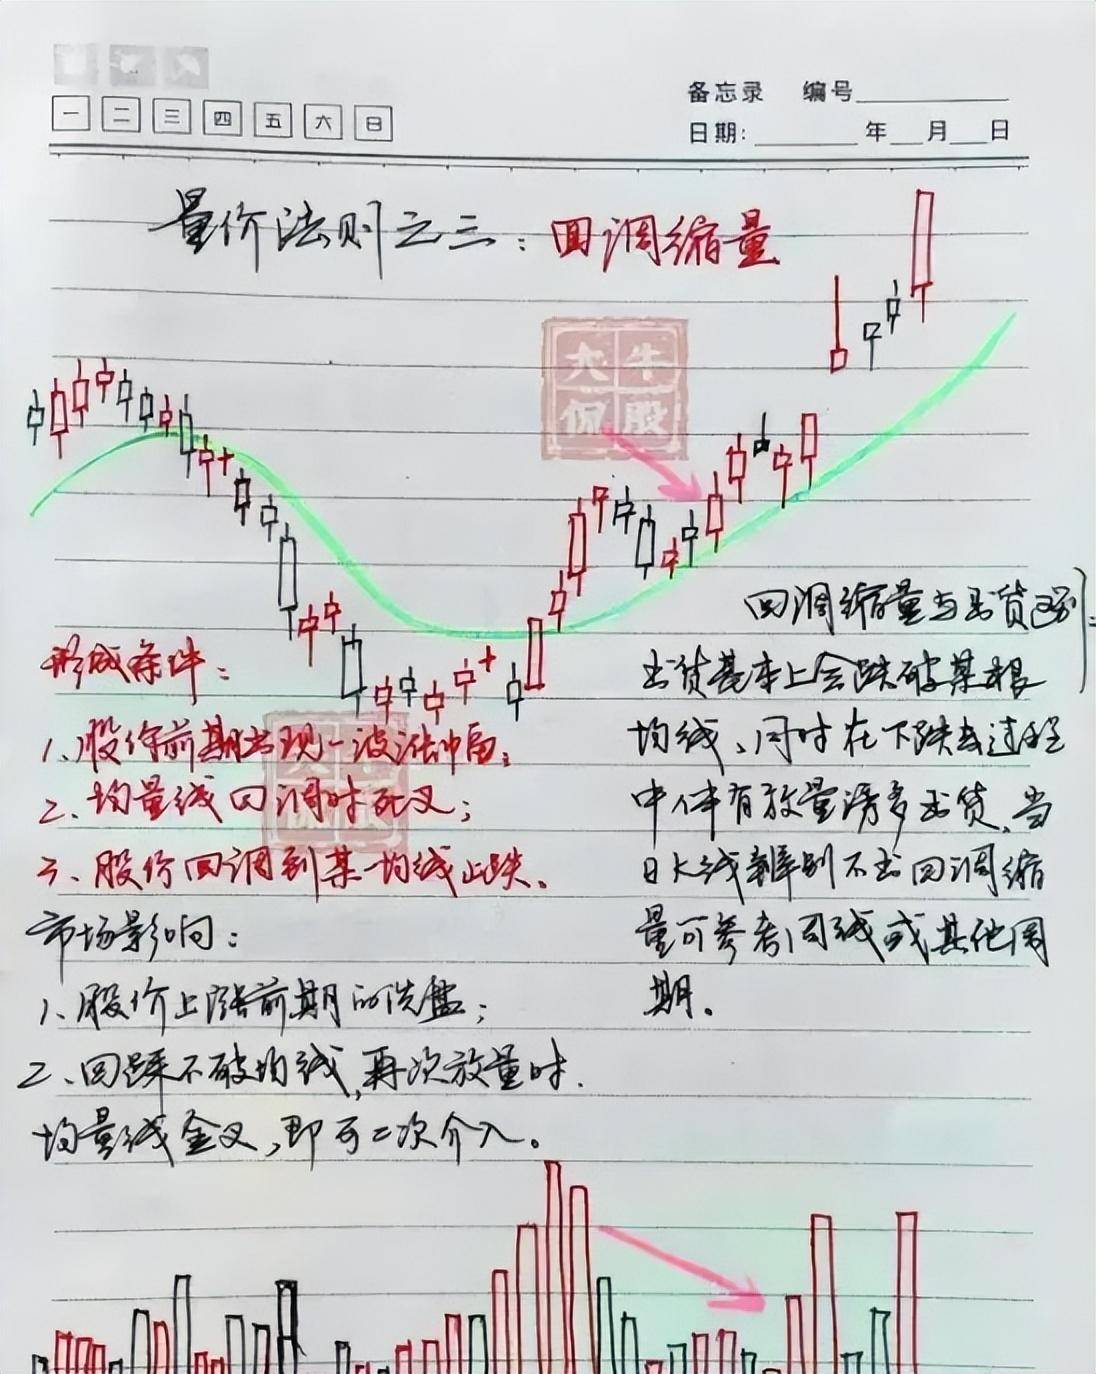 一 二 三 四 五 六 日
备忘录 编号
日期: 年 月 日
量价法则之三：回调缩量
大牛
侃股
回调缩量与出货区别：
出货基本上会跌破某根
均线、同时在下跌去过程
中伴有放量诱多出货、当
日K线辨别不出回调缩
量可参考周线或其他周
期。
形成条件：
1、股价前期出现一波涨幅；
2、均量线回调时死叉；
3、股价回调到某一均线止跌。
市场影响：
1、股价上涨前期的洗盘；
2、回踩不破均线，再次放量时.
均量线金叉，即可二次介入。